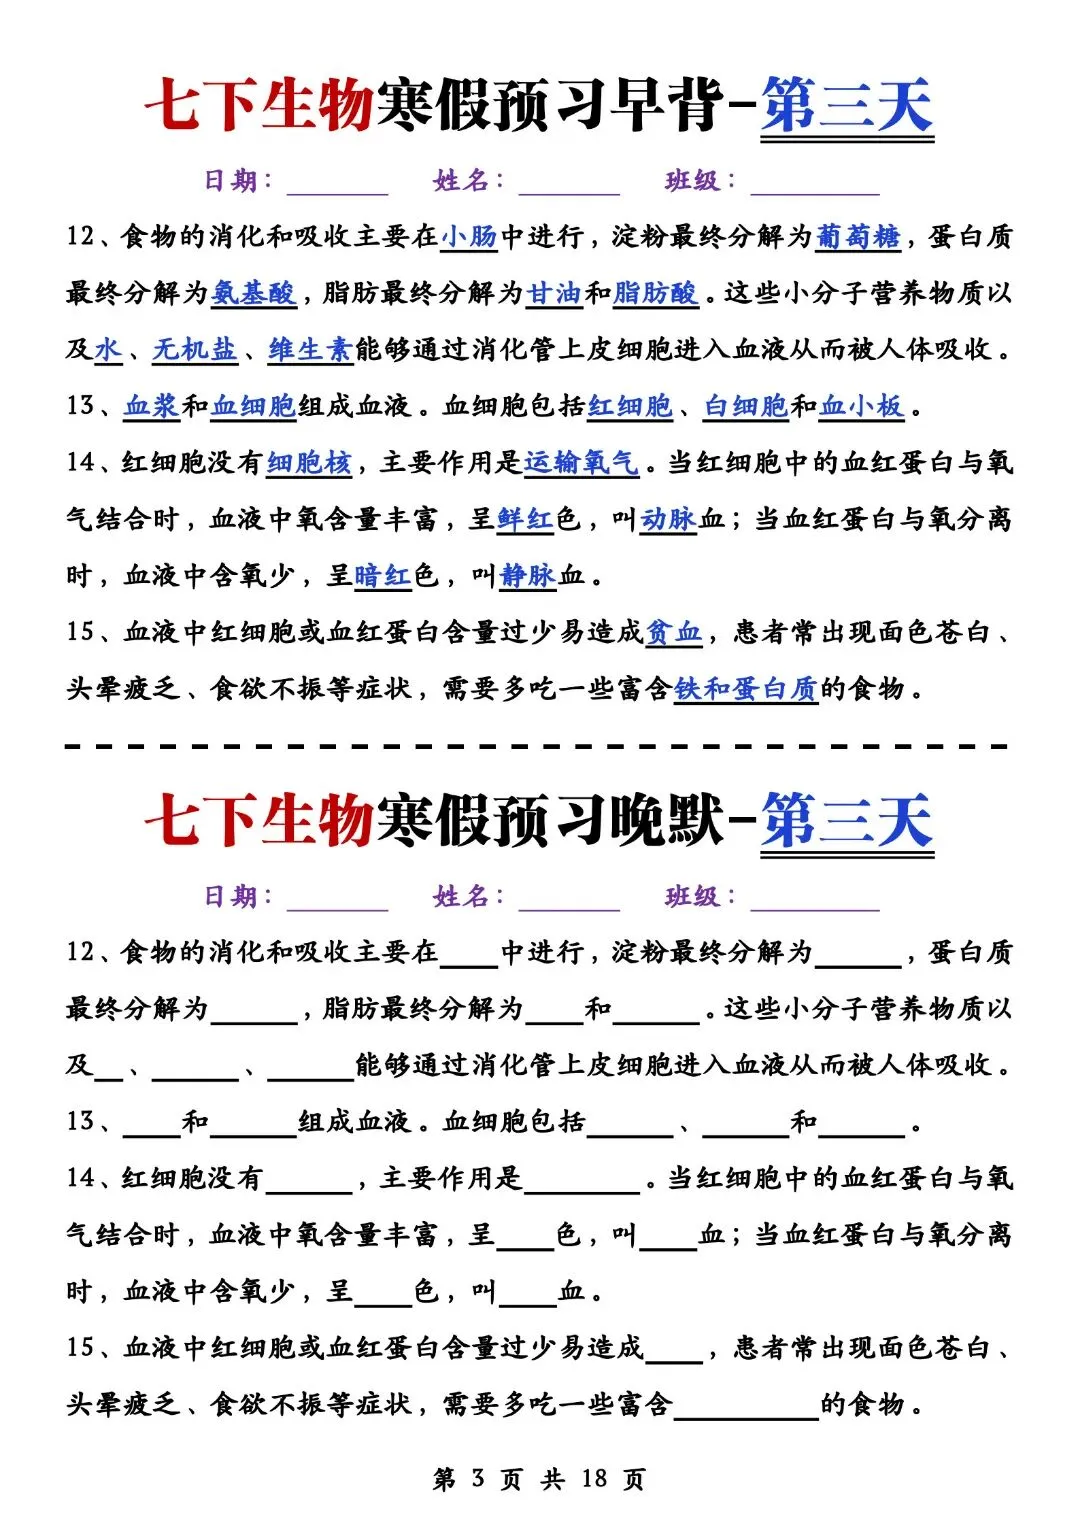 七下生物寒假预习早背-第三天
日期：_______ 姓名：_______ 班级：_________
12、食物的消化和吸收主要在小肠中进行，淀粉最终分解为葡萄糖，蛋白质
最终分解为氨基酸，脂肪最终分解为甘油和脂肪酸。这些小分子营养物质以
及水、无机盐、维生素能够通过消化管上皮细胞进入血液从而被人体吸收。
13、血浆和血细胞组成血液。血细胞包括红细胞、白细胞和血小板。
14、红细胞没有细胞核，主要作用是运输氧气。当红细胞中的血红蛋白与氧
气结合时，血液中氧含量丰富，呈鲜红色，叫动脉血；当血红蛋白与氧分离
时，血液中含氧少，呈暗红色，叫静脉血。
15、血液中红细胞或血红蛋白含量过少易造成贫血，患者常出现面色苍白、
头晕疲乏、食欲不振等症状，需要多吃一些富含铁和蛋白质的食物。
七下生物寒假预习晚默-第三天
日期：_______ 姓名：_______ 班级：_________
12、食物的消化和吸收主要在____中进行，淀粉最终分解为______，蛋白质
最终分解为______，脂肪最终分解为____和______。这些小分子营养物质以
及__、______、______能够通过消化管上皮细胞进入血液从而被人体吸收。
13、____和______组成血液。血细胞包括______、______和______。
14、红细胞没有______，主要作用是________。当红细胞中的血红蛋白与氧
气结合时，血液中氧含量丰富，呈____色，叫____血；当血红蛋白与氧分离
时，血液中含氧少，呈____色，叫____血。
15、血液中红细胞或血红蛋白含量过少易造成____，患者常出现面色苍白、
头晕疲乏、食欲不振等症状，需要多吃一些富含__________的食物。
第 3 页 共 18 页